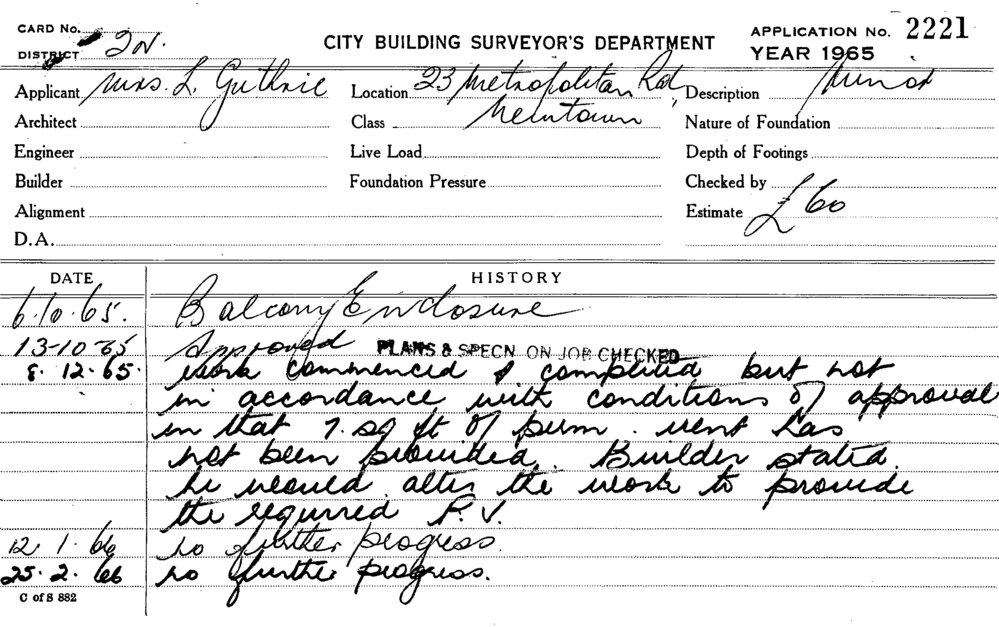 CARD No.
DISTRICT 2N.
CITY BUILDING SURVEYOR'S DEPARTMENT
APPLICATION No. 2221
YEAR 1965
Applicant Mrs. L. Guthrie
Location 23 Metropolitan Rd,
Description Minor
Architect
Class Newtown
Nature of Foundation
Engineer
Live Load
Depth of Footings
Builder
Foundation Pressure
Checked by
Alignment
Estimate £ 60
D.A.
DATE HISTORY
6.10.65. Balcony Enclosure
13-10-65 Approved PLANS & SPECN ON JOB CHECKED
8. 12. 65. Work commenced & completed but not
in accordance with conditions of approval
in that 7. sq ft of perm. vent has
not been provided. Builder stated
he would alter the work to provide
the required P.V.
12. 1. 66 no further progress.
25. 2. 66 no further progress.
C of S 882